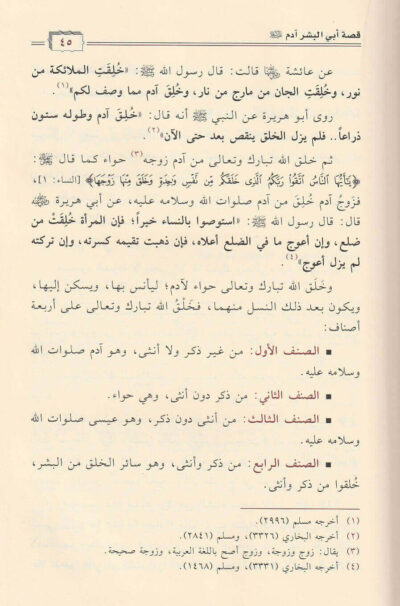 قصة أبي البشر آدم ﷺ
٤٥
عن عائشة رضي الله عنها قالت: قال رسول الله ﷺ: «خُلِقَتِ الملائكة من
نور، وخُلِقَتِ الجان من مارج من نار، وخُلِقَ آدم مما وصف لكم»(١).
روى أبو هريرة عن النبي ﷺ أنه قال: «خُلِقَ آدم وطوله ستون
ذراعاً.. فلم يزل الخلق ينقص بعد حتى الآن»(٢).
ثم خلق الله تبارك وتعالى من آدم زوجه(٣) حواء كما قال ﷻ:
﴿يَٰٓأَيُّهَا ٱلنَّاسُ ٱتَّقُوا۟ رَبَّكُمُ ٱلَّذِى خَلَقَكُم مِّن نَّفْسٍ وَٰحِدَةٍ وَخَلَقَ مِنْهَا زَوْجَهَا﴾ [النساء: ١]،
فزوجُ آدم خُلِقَ من آدم صلوات الله وسلامه عليه، عن أبي هريرة رضي الله عنه
قال: قال رسول الله ﷺ: «استوصوا بالنساء خيراً؛ فإن المرأة خُلِقَتْ من
ضلع، وإن أعوج ما في الضلع أعلاه، فإن ذهبت تقيمه كسرته، وإن تركته
لم يزل أعوج»(٤).
وخَلَق الله تبارك وتعالى حواء لآدم؛ ليأنس بها، ويسكن إليها،
ويكون بعد ذلك النسل منهما، فخَلْقُ الله تبارك وتعالى على أربعة
أصناف:
▪ الصنف الأول: من غير ذكر ولا أنثى، وهو آدم صلوات الله
وسلامه عليه.
▪ الصنف الثاني: من ذكر دون أنثى، وهي حواء.
▪ الصنف الثالث: من أنثى دون ذكر، وهو عيسى صلوات الله
وسلامه عليه.
▪ الصنف الرابع: من ذكر وأنثى، وهو سائر الخلق من البشر،
خُلقوا من ذكر وأنثى.
(١) أخرجه مسلم (٢٩٩٦).
(٢) أخرجه البخاري (٣٣٢٦)، ومسلم (٢٨٤١).
(٣) يقال: زوج وزوجة، وزوج أصح باللغة العربية، وزوجة صحيحة.
(٤) أخرجه البخاري (٣٣٣١)، ومسلم (١٤٦٨).